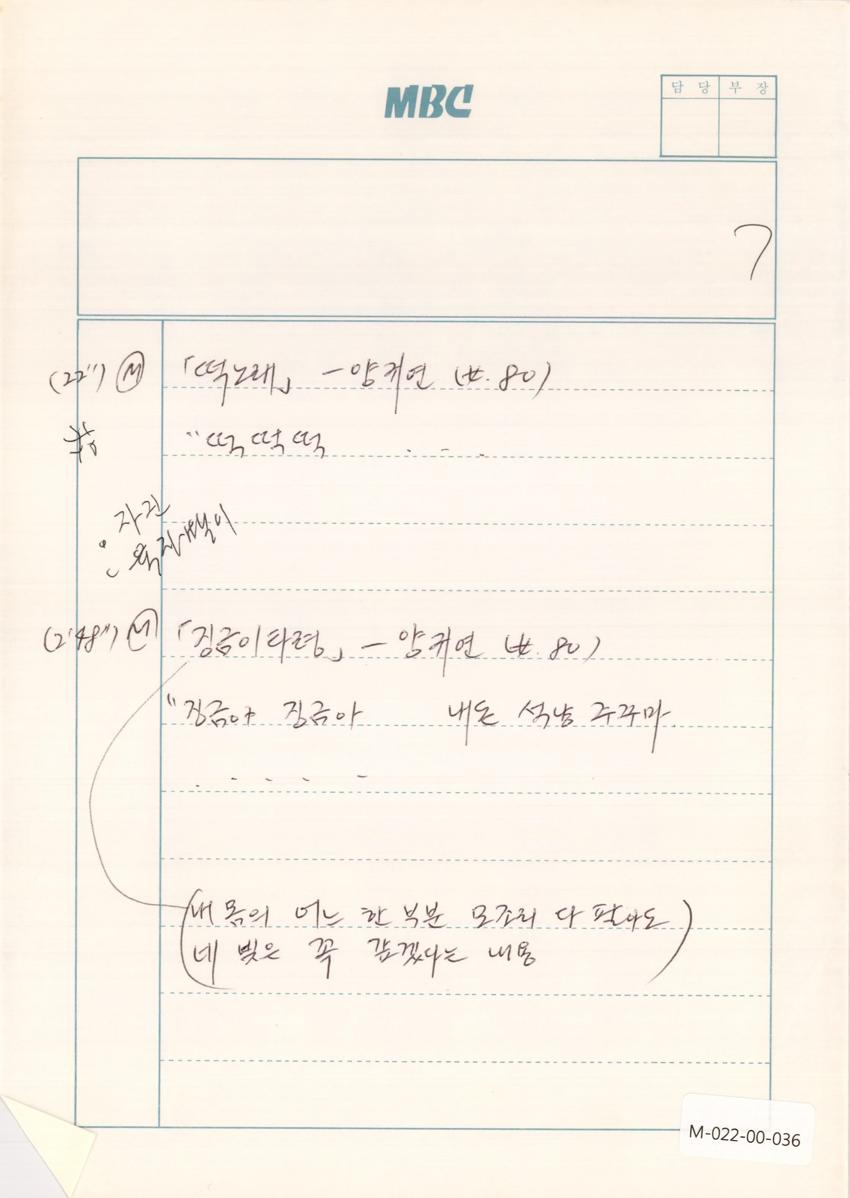 MBC
담 당 부 장
7
(22") Ⓜ 「떡노래」 - 양귀연 (女. 80)
창 "떡 떡 떡 . - .
자진
육자배기
(2'48") Ⓜ 「징금이타령」 - 양귀연 (女. 80)
"징금아 징금아 내돈 석냥 주꾸마.
. - - . -
(내 몸의 어느 한 부분 모조리 다 팔아도
네 빚은 꼭 갚겠다는 내용)
M-022-00-036